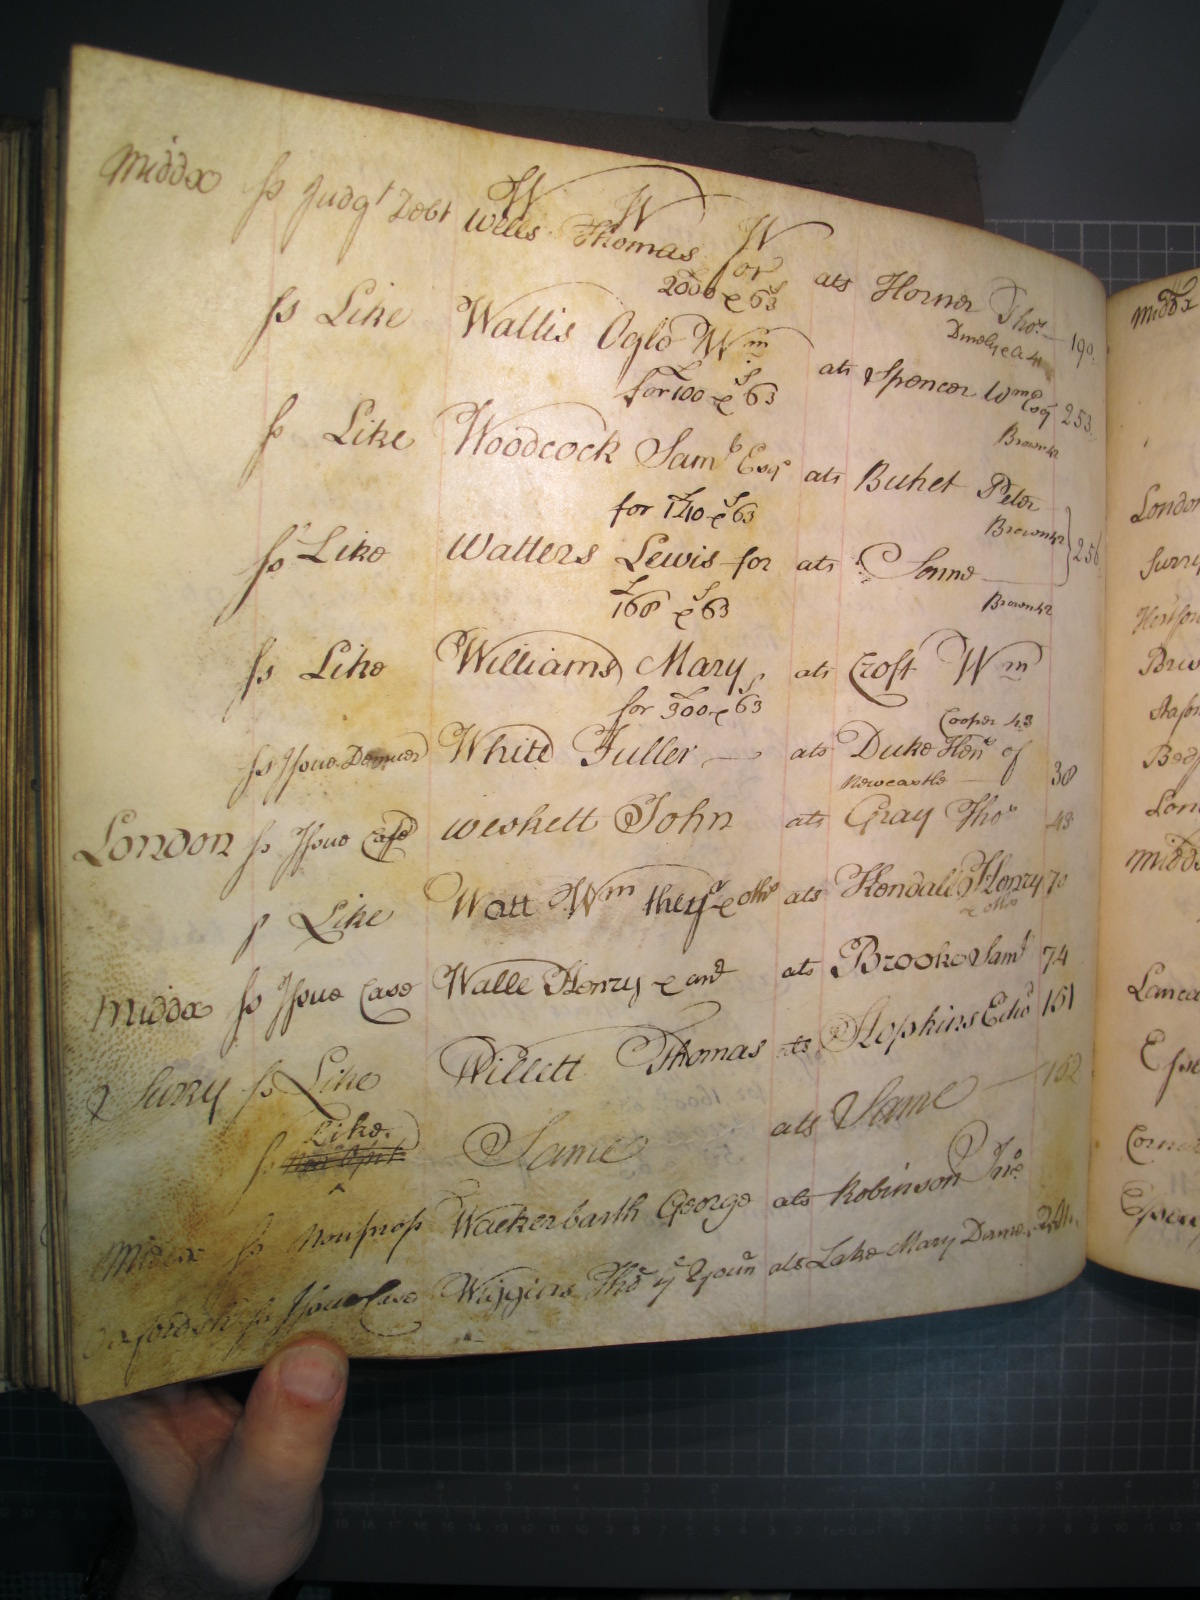 W W W
Middx ss Judgt Debt Wells Thomas for ats Horner Thos 190
2000 £ & 63s
ss Like Wallis Oglo Wm ats Spencer Wm Esqr 253
for £100 & 63s
Brown 42
ss Like Woodcock Saml Esqr ats Buhet Peter
for £140 & 63s
Brown 42
ss Like Watters Lewis for ats Same
£168 & 63s
Brown 42
ss Like Williams Mary ats Croft Wm
for £300 & 63s
Cooper 43
ss Issue White Fuller ats Duke Hen of
Newcastle 38
London ss Issue Case Weskett John ats Gray Thos 43
ss Like Watt Wm the yr & othr ats Kendall Henry 70
& othr
Middx ss Issue Case Walle Henry & anr ats Brooke Saml 74
Surry ss Like Willett Thomas ats Hopkins Edwd 151
ss Like Same ats Same 152
Middx ss Nonpross Wackerbarth George ats Robinson Jno
Oxfordsh ss Issue Case Wiggins Thos ye Younr ats Lake Mary Dame
Middx
London
Surry